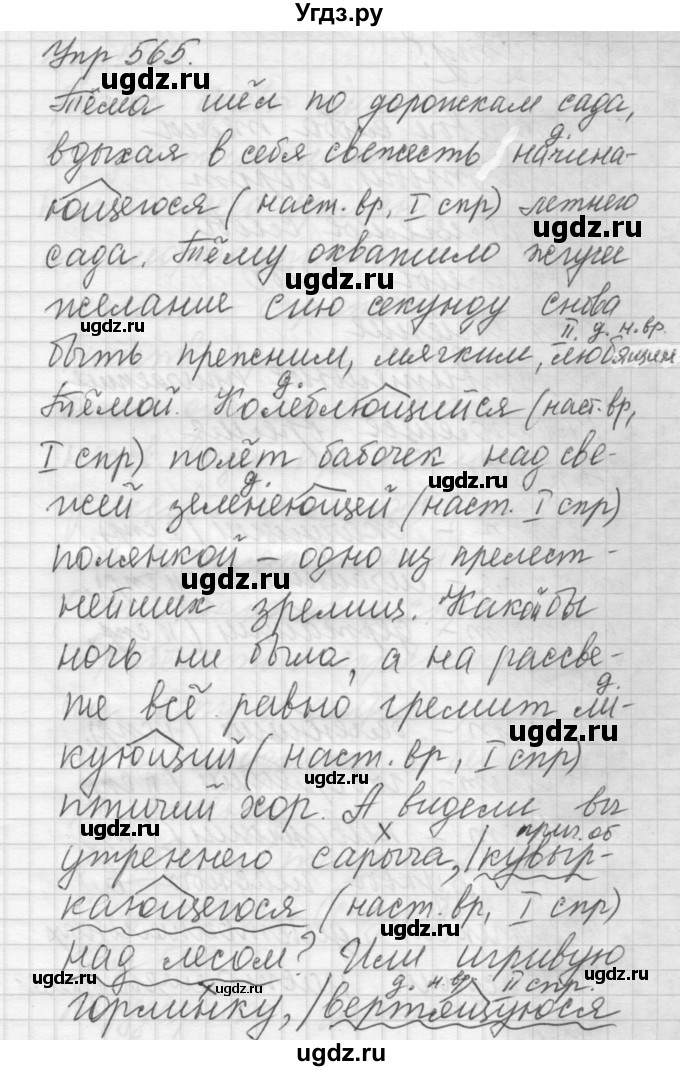 Угдз.ру
Упр 565.
Тёма шёл по дорожкам сада,
вдыхая в себя свежесть начина-
ющегося (наст. вр, I спр) летнего
сада. Тёму охватило жгучее
желание сию секунду снова
быть прежним, мягким, любящим
Тёмой. Колеблющийся (наст. вр,
I спр) полёт бабочек над све-
жей зеленеющей (наст. I спр)
полянкой – одно из прелест-
нейших зрелищ. Какой бы
ночь ни была, а на рассве-
те всё равно гремит ли-
кующий (наст. вр, I спр)
птичий хор. А видели вы
утреннего сарыча, кувыр-
кающегося (наст. вр, I спр)
над лесом? Или игривую
горлинку, вертящуюся
ugdz.ru